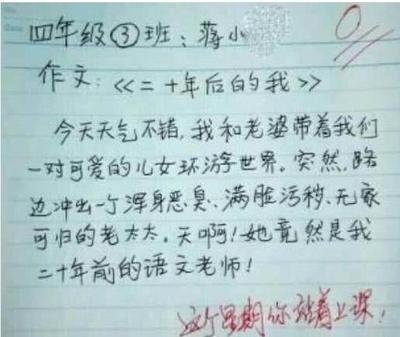 0
四年级③班：蒋小
作文：《二十年后的我》
今天天气不错，我和老婆带着我们
一对可爱的儿女环游世界。突然，路
边冲出一个浑身恶臭、满脸污秽、无家
可归的老太太。天啊！她竟然是我
二十年前的语文老师！
这个星期你站着上课！